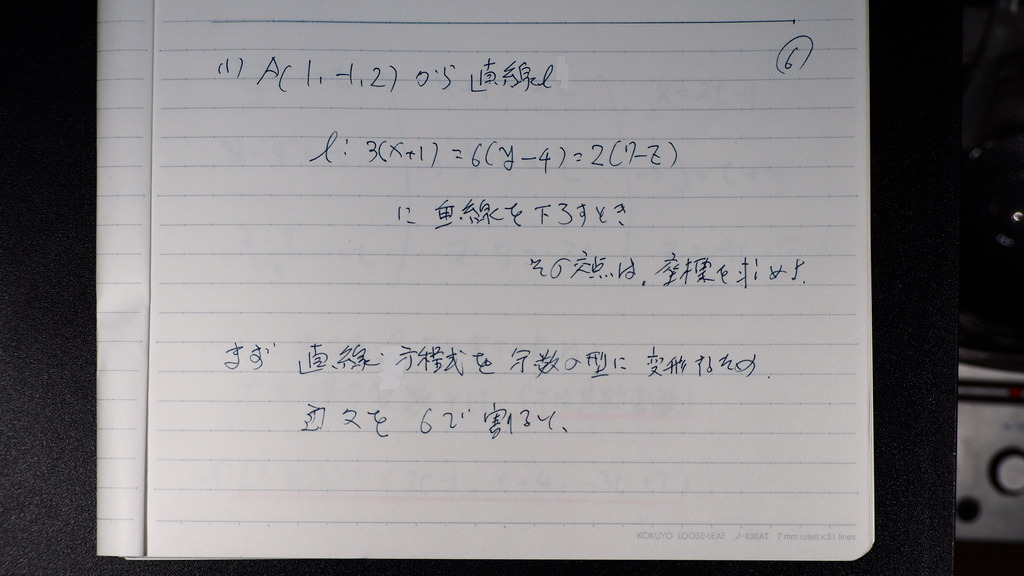 ⑥
(1) A(1,-1,2) から 直線l
l: 3(x+1)=6(y-4)=2(7-z)
に 垂線を下ろすとき
その交点は、座標を求めよ.
まず 直線 方程式を 分数の型に 変形するため
を 6で割ると、
KOKUYO LOOSE-LEAF ノ-836AT 7 mm ruled×31 lines